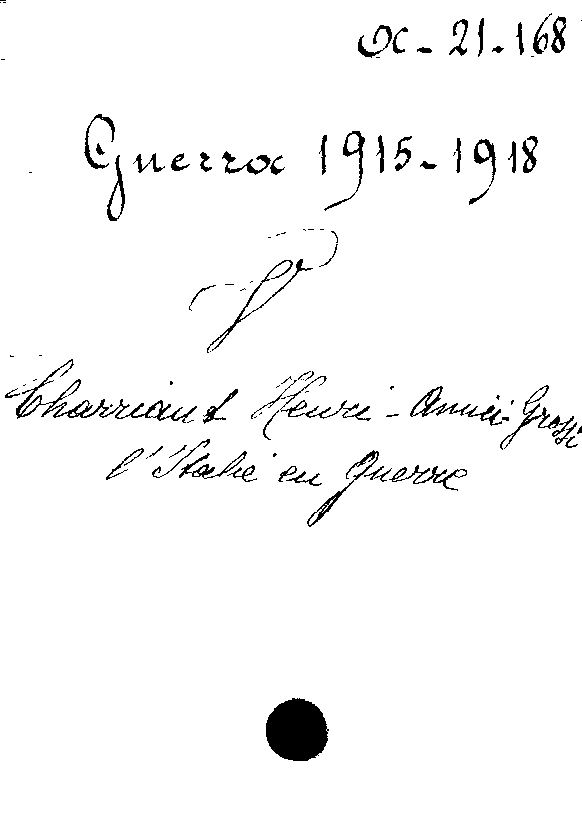 α-21-168
Guerra 1915-1918
V
Charriaut Henri - Amici-Grossi
l'Italie en Guerre